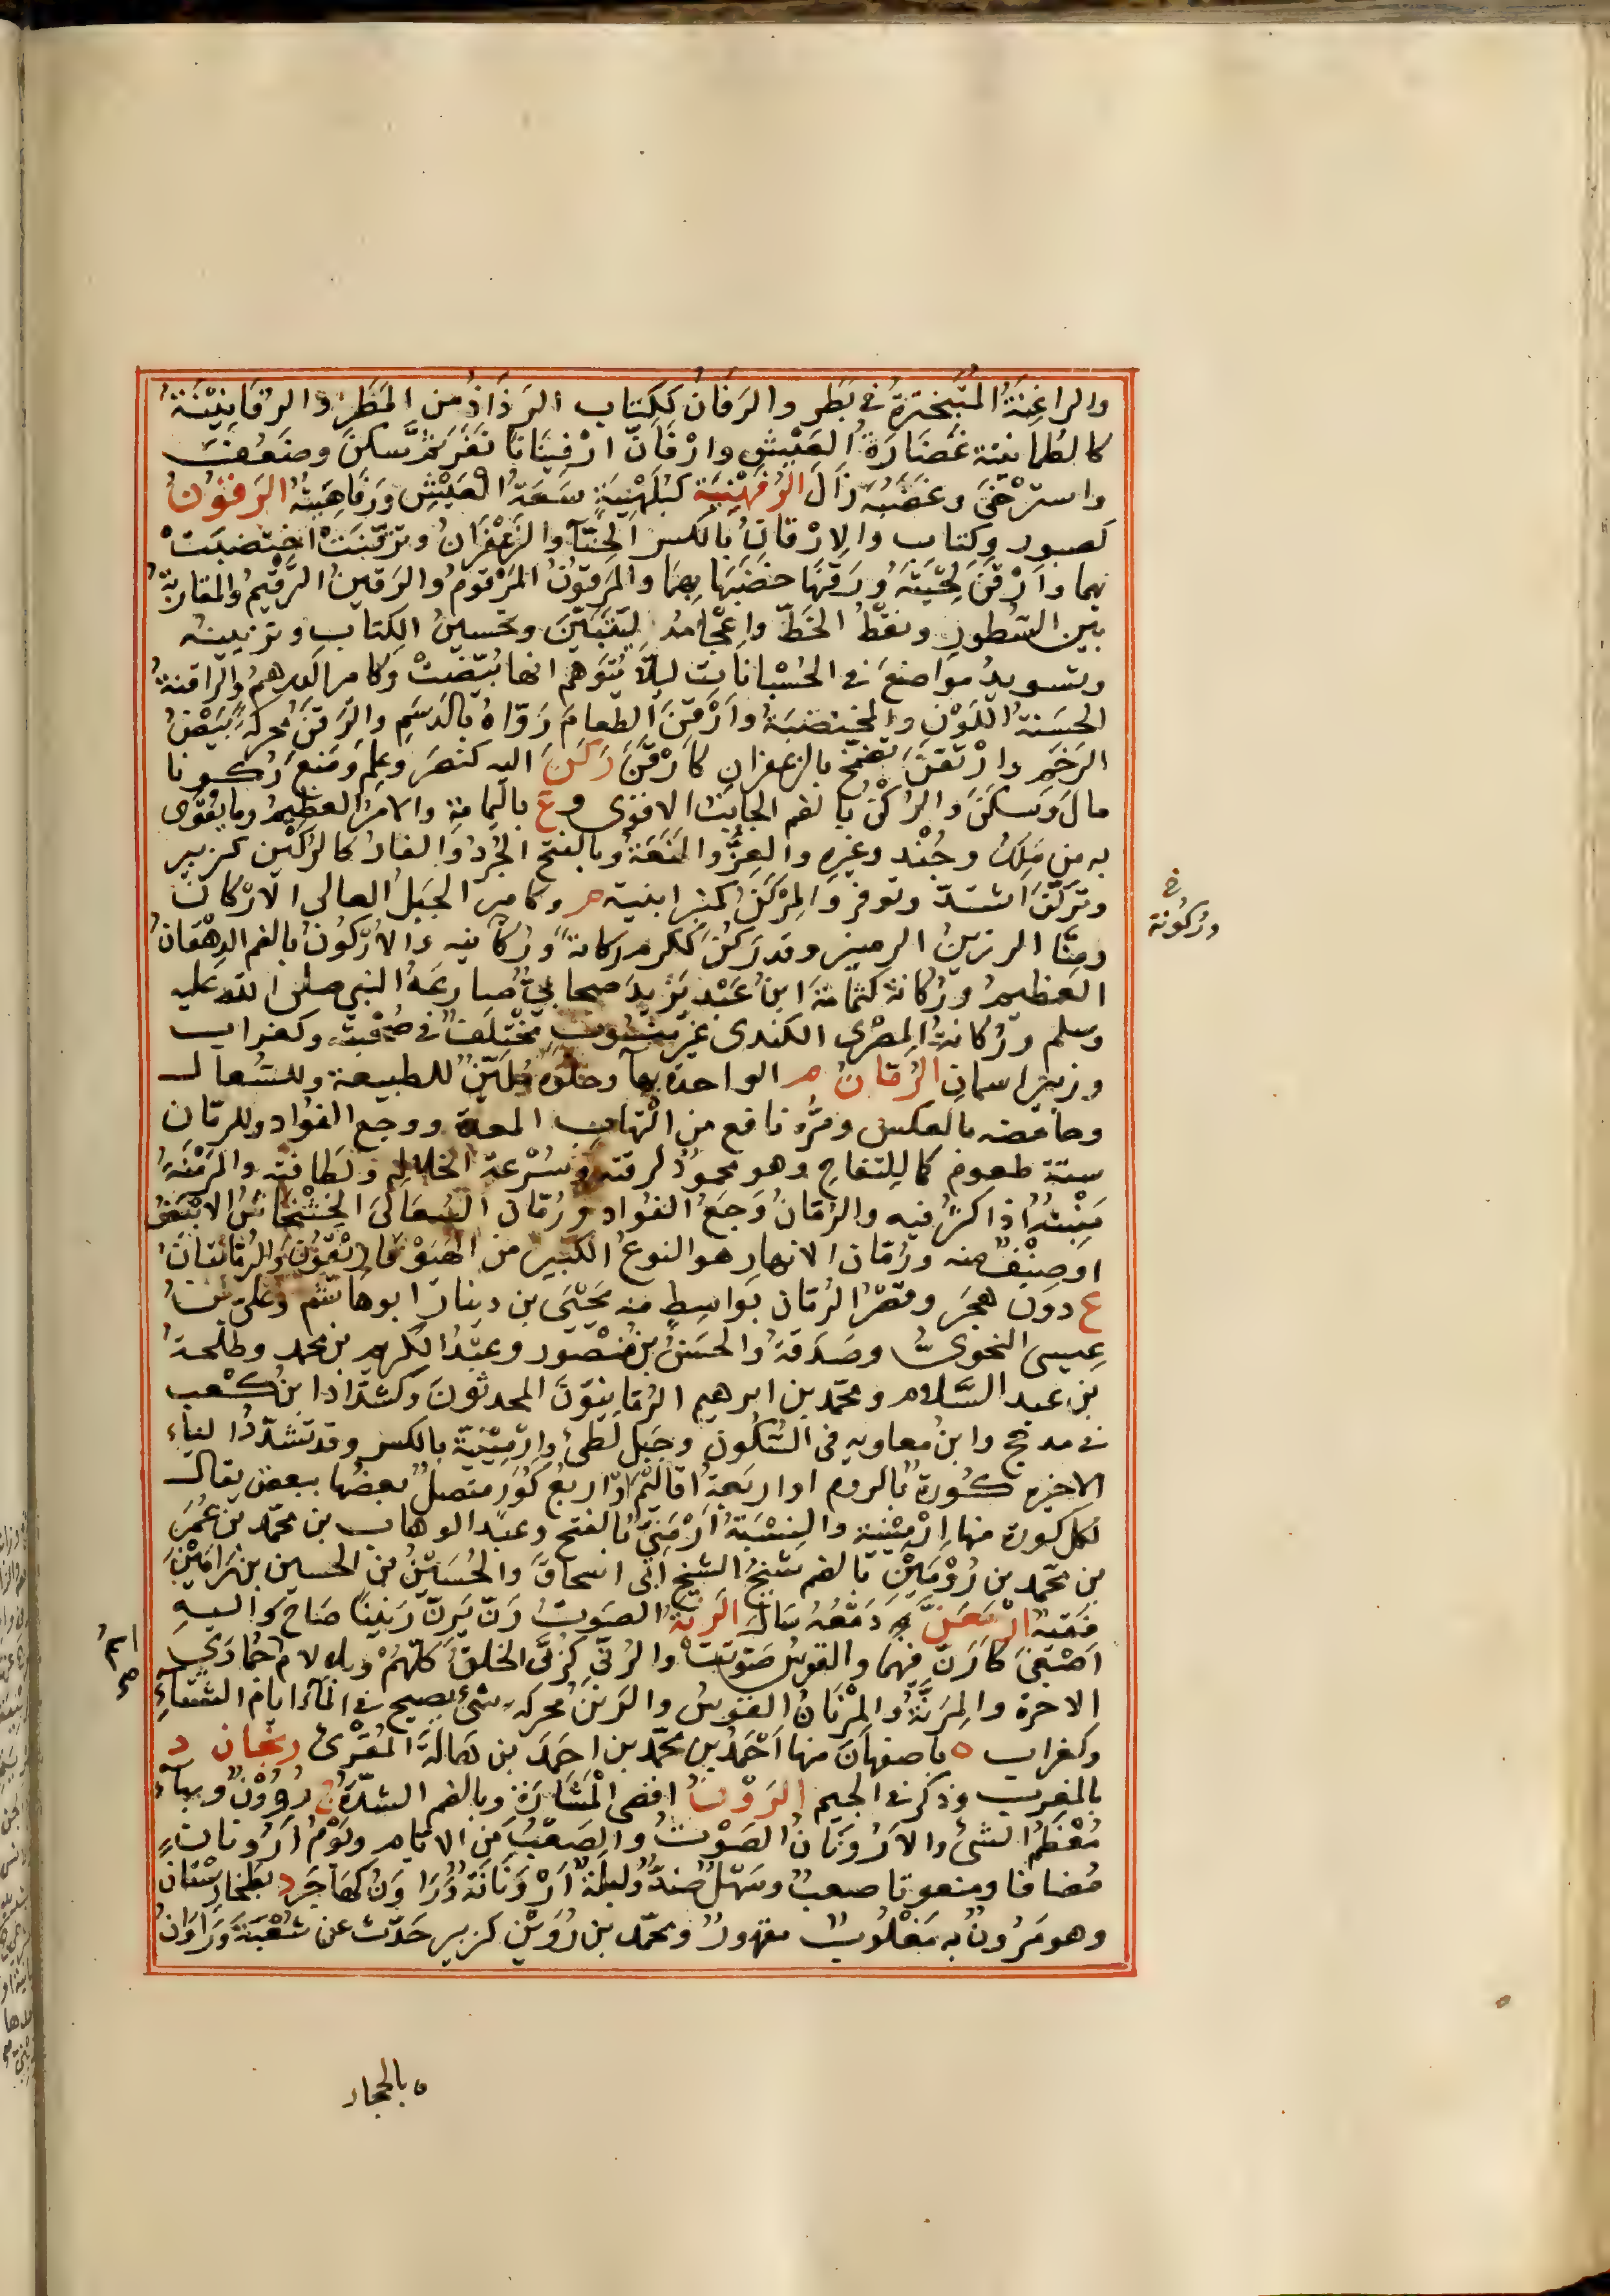 والراغِنَةُ المُتَبَخْتِرَةُ في بَطَرٍ والرَفَانُ ككِتابٍ الرَذَاذُ من المَطَرِ والرُفَانِيَنَةُ
كالطُمانينة غَضَارَةُ العَيْشِ وارْفَأَنَّ ارْفِينَانًا نَفَرَ ثم سَكَنَ وضَعُفَ
واسترْخَى وغَضَبُهُ زَالَ الرُفَهْنِيَة كبُلَهْنِيَةٍ سَعَةُ العَيْشِ ورَفَاهِيَتُهُ الرَقُونُ
كصبورٍ وكتاب والإرْقانِ بالكسر الحِنَّآ والزَعْفَرانُ وترقَّنَتْ اخْتَضَبَتْ
بهما وأرْقَنَ لِحْيَتَهُ ورَقَّنَهَا خضَبَهَا بهما والمَرقونُ المَرْقومُ والرَقينُ الرَّقيمُ والمقاربةُ
بين السُطورِ ونَقْطُ الخَطّ وإعْجَامُهُ لِيَتَبَيَّنَ وتحسينُ الكِتابِ وتزيينه
وتسويدُ مواضِعَ في الحُسْبانات ليلّا يُتَوَهَّم انها بُيِّضَتْ وكامير الدِرهمُ والراقِنةُ
الحَسَنةُ اللَوْنِ والمختضبةُ وأرْقَنَ الطعامَ رَوّاهُ بالدَسَمِ والرَقَنُ محركةً بَيْضُ
الرَخَمِ وارْتَقَنَ تضمّخ بالزعفران كارْقَنَ رَكَنَ اليه كنصَرَ وعلِمَ ومَنَعَ رُكونا
مالَ وَسكَنَ والرُكْنُ بالضم الجانِبُ الاقوَى وع باليَمامة والامرُ العظيمُ وما يُقَوَّى
به من مَلِكٍ وجُنْدٍ وغيرِهِ والعِزُّ والمَنَعَةُ وبالفتح الجُرَذُ والفارُ كالرُكَيْنِ كزبير
وتَركَّنَ اشتدّ وتوقر والمِرْكَنُ كمِنبَرٍ آنية م وكامير الجَبَلُ العالى الاركان
ومِنَّا الرزينُ الرميز وقد رَكُنَ ككرم ركانةً ورُكَانِيَه والأُرْكُونُ بالضم الدِهْقَانُ
العظيمُ ورُكانةُ كثُمامَةَ ابنُ عَبْدِ يَزيدَ صحابىٌّ صَارعَهُ النبى صلى الله عليه
وسلم ورُكانةُ المِصْرى الكندى غيرُ منسوبٍ مُخْتلَفٌ في صُحْبته وكغراب
وزبير اسمانِ الرُمّانُ م الواحدة بهآ وحلْوُه مُلَيِّنٌ للطبيعة وللسُعال
وحامضه بالعكس ومُزُّه نافع من الْتهابِ المعدة ووجع الفؤاد وللرمّان
ستة طعوم كا للِتفاح وهو محمودٌ لرقته وسُرْعة انحلاله ولَطافته والمَرْمَنَةُ
مَنْبِتُهُ اذا كثُر فيه والرُمّانُ وَجَعُ الفؤاد ورُمّان السُعالَى الخشْخَاشُ الابْيَضُ
او صِنْفٌ منه ورُمّان الانهارِ هو النوعُ الكبير من الهَيو فاريْقُون والرُمّانتانِ
ع دون هجَرَ وقصْرُ الرُمّان بواسِطٍ منه يَحْيَى بن دينار ابوهاشم وعلىّ بن
عيسى النحوىُّ وصَدَقةُ والحَسَنُ بن مَنْصورٍ وعبْدُ الكريم بن محمد وطلحةُ
بن عبد السَّلام ومحمد بن ابرهيم الرُمّانيّونَ المحدثونَ وكشدّاد ابن كعب
في مدحج وابنُ معاويه فى السُكونِ وجَبَل لطئ وإرْمِيْنِيّة بالكسر وقد تشدَّدُ الياء
الاخيره كُورَةٌ بالروم او اربَعةُ اقاليمَ او اربعُ كُوَرٍ متصلٌ بعضُها ببعض يقال
لكل كورة منها إرْمِيْنيَة والنِسْبَةُ أَرْمَنِيٌّ بالفتح وعبد الوهاب بن محمد بن عُمَرَ
بن محمد بن رُوْمَين بالضم شيخُ الشيخ أبى اسحاقَ والحُسَيْنُ من الحسين بن رَامَيْنَ
فَقيهٌ ارْمَعَنَّ دَمْعُهُ سَالَ الرَنّةُ الصَوتُ رَنّ يَرِنّ رَنِيْنًا صَاحَ واليهِ
أصْغَى كأرَنَّ فيهما والقوسُ صَوّتَتْ والرُنّى كرُبَّى الخلقُ كلهُمْ وبلا لامٍ جُمادَى
الاخرة والمِرَنّةُ والمِرْنَانُ القوسُ والرَنَنُ محركه شىءٌ يصيح في المآء ايام الشتاءِ
وكغراب ة باصفهانَ منها أحْمَدُ بن محمد بن احمَدَ بن هالةَ المُقْرِئُ رنجان د
بالمغرب وذكر في الجيم الرَوْنُ اقصى الْمَشَارَة وبالضم الشدّةُ ج رُوُوْنٌ وبهآء
مُعْظَمُ الشىءِ والأرْونَانُ الصَوْتُ والصَعْبُ من الايّام ويَوْمُ أرْوَنانٍ
مُضافا ومنعوتا صعبٌ وسَهْلٌ ضدٌّ وليلَةٌ أرْوَنَانَةٌ ورَاوَنُ كهاجَر د بطُخارِسْتان
وهو مَرُونٌ به مَغْلوبٌ مقهورٌ ومحمد بن رُوَيْن كزبير حَدّث عن شُعْبَةَ ورَاوَنُ
خ
ورُكونة
ة بالحجاز